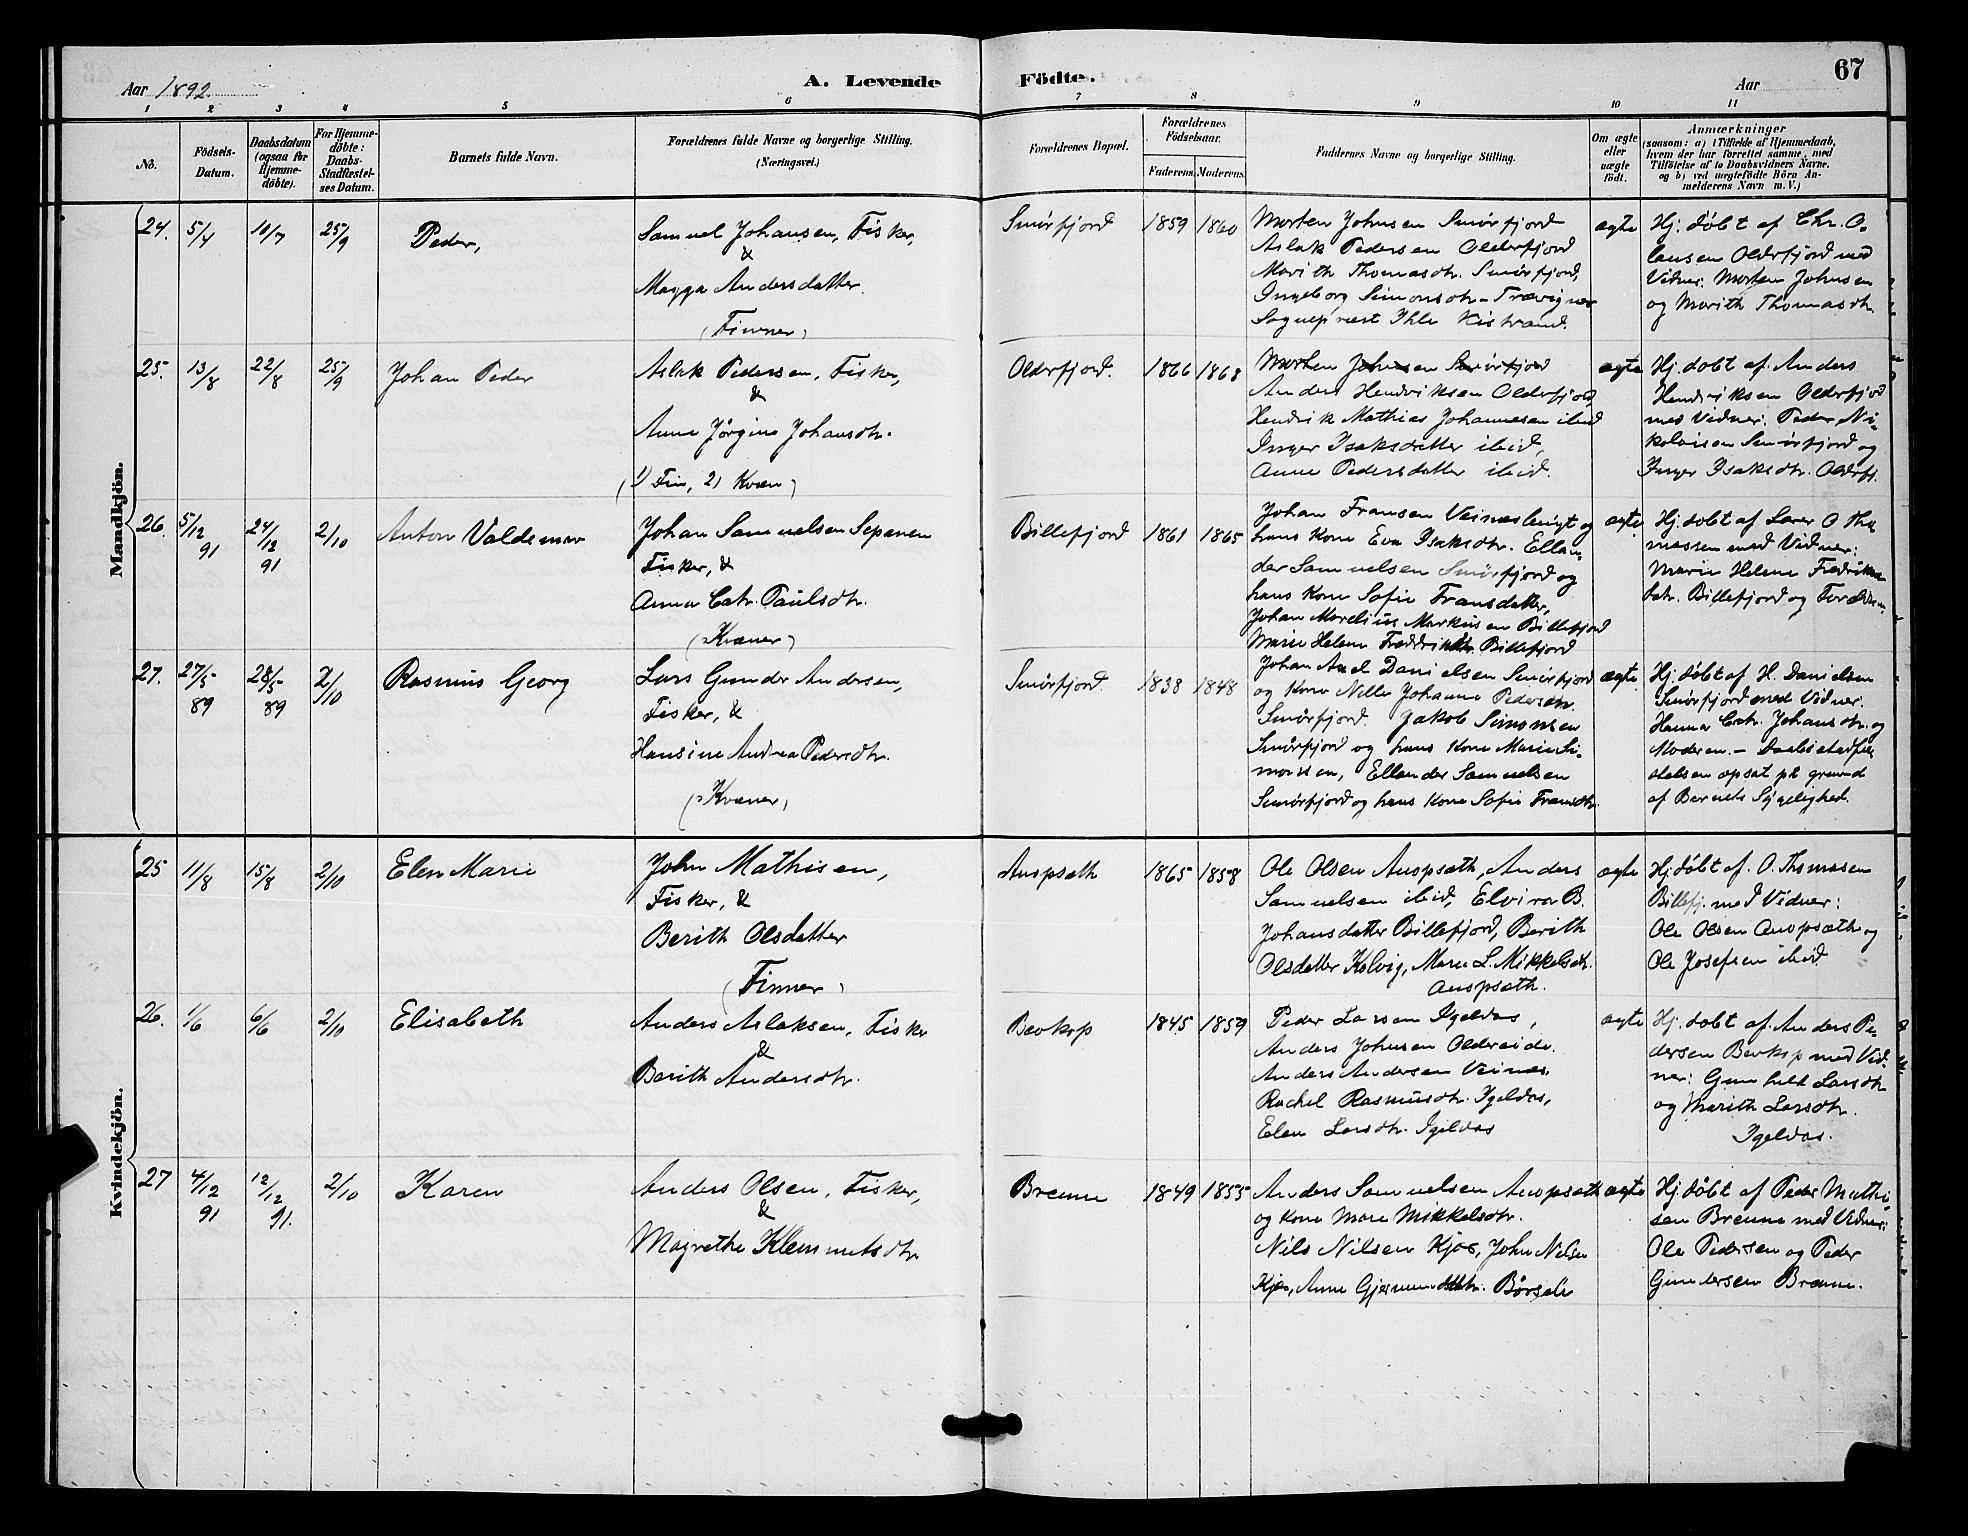 Aar 1892
A. Levende Födte.
Aar
67
1 2 3 4 5 6 7 8 9 10 11
No.
Födsels-Datum.
Daabsdatum (ogsaa for Hjemmedöbte).
For Hjemmedöbte: Daabs-Stadfæstelses Datum.
Barnets fulde Navn.
Forældrenes fulde Navne og borgerlige Stilling.
(Næringsvei.)
Forældrenes Bopæl.
Forældrenes Födselsaar.
Faderens. Moderens.
Faddernes Navne og borgerlige Stilling.
Om ægte eller uægte födt.
Anmærkninger
(saasom: a) i Tilfælde af Hjemmedaab,
hvem der har forrettet samme, med
Tilföielse af to Daabsvidners Navne,
og b) ved uægtefödte Börn Anmelderens Navn m. V.)
Mandkjön.
24. 5/4 10/7 25/9 Peder,
Samuel Johansen, Fisker,
&
Magga Andersdatter.
(Finner)
Smörfjord 1859 1860
Morten Johnsen Smörfjord
Aslak Pedersen Olderfjord
Marith Thomasdtr. Smörfjord,
Ingeborg Simonsdtr - Trævignes
Sogneprest Ihle Kistrand.
ægte
Hj. döbt af Chr. O-
lausen Olderfjord med
Vidner: Morten Johnsen
og Marith Thomasdtr.
25. 13/8 22/8 25/9 Johan Peder
Aslak Pedersen, Fisker,
&
Anne Jörgine Johansdtr.
(1) Fin, 2) Kvæn)
Olderfjord. 1866 1868
Morten Johnsen Smörfjord
Anders Hendriksen Olderfjord,
Hendrik Mathias Johannesen ibid
Inger Isaksdatter ibid,
Anne Pedersdatter ibid.
ægte
Hj. döbt af Anders
Hendriksen Olderfjord
med Vidner: Peder Ni-
kolaisen Smörfjord og
Inger Isaksdtr. Olderfj.
26. 5/12 91 24/12 91 2/10 Anton Valdemar
Johan Samuelsen Sepanen
Fisker, &
Anna Catr. Paulsdtr.
(Kvæner)
Billefjord 1861 1865
Johan Fransen og
hans Kone Eva Isaksdtr. Ellan-
der Samuelsen Smörfjord og
hans Kone Sofie Fransdatter,
Johan Marelius Markusen Billefjord
Marie Helene Fredriksdtr. Billefjord
ægte
Hj. döbt af Lærer O. Tho-
massen med Vidner:
Marie Helene Fredriks-
datr. Billefjord og
27. 27/5 89 28/5 89 2/10 Rasmus Georg
Lars Gunder Andersen,
Fisker, &
Hansine Andrea Pedersdtr.
(Kvæner)
Smörfjord. 1838 1848
Johan Axel Danielsen Smörfjord
og Kone Nille Johanne Pedersdtr.
Smörfjord. Jakob Simonsen
Smörfjord og hans Kone Marie Si-
monsen, Ellander Samuelsen
Smörfjord og hans Kone Sofie Fransdtr.
ægte
Hj. döbt af H. Danielsen
Smörfjord med Vidner:
Hanna Catr. Johansdtr. og
Moderen. - Daabsstadfæ-
stelsen opsat på grund
af Barnets Sygelighed.
Kvindekjön.
25 11/8 15/8 2/10 Elen Marie
John Mathisen,
Fisker, &
Berith Olsdatter
(Finner)
Auspsæth 1865 1858
Ole Olsen Auspsæth, Anders
Samuelsen ibid, Elvira B.
Johansdatter Billefjord, Berith
Olsdatter Kolvig, Mare L. Mikkelsdtr.
Auspsæth.
ægte
Hj. döbt af O. Thomasen
Billefj. med Vidner:
Ole Olsen Auspsæth og
Ole Josefsen ibid
26. 1/6 6/6 2/10 Elisabeth
Anders Aslaksen, Fisker
&
Berith Andersdtr.
Bevkop 1845 1859
Peder Larsen Igeldas,
Anders Johnsen Oldereide.
Anders Andersen Veines,
Rachel Rasmusdtr. Igeldas,
Elen Larsdtr. Igeldas
ægte
Hj. döbt af Anders Pe-
dersen Bevkop med Vid-
ner: Gunhild Larsdtr
og Marith Larsdtr.
Igeldas.
27 4/12 91 12/12 91. 2/10 Karen
Anders Olsen, Fisker,
&
Magrethe Klemmetsdtr
Brenne 1849 1855
Anders Samuelsen Auspsæth
og Kone Mare Mikkelsdtr.
Nils Nilsen Kjæs, John Nilsen
Kjæs, Anne Gjermundsdtr. Börselv
ægte
Hj. döbt af Peder Mathi-
sen Brenne med Vidner:
Ole Pedersen og Peder
Gundersen Brenne.